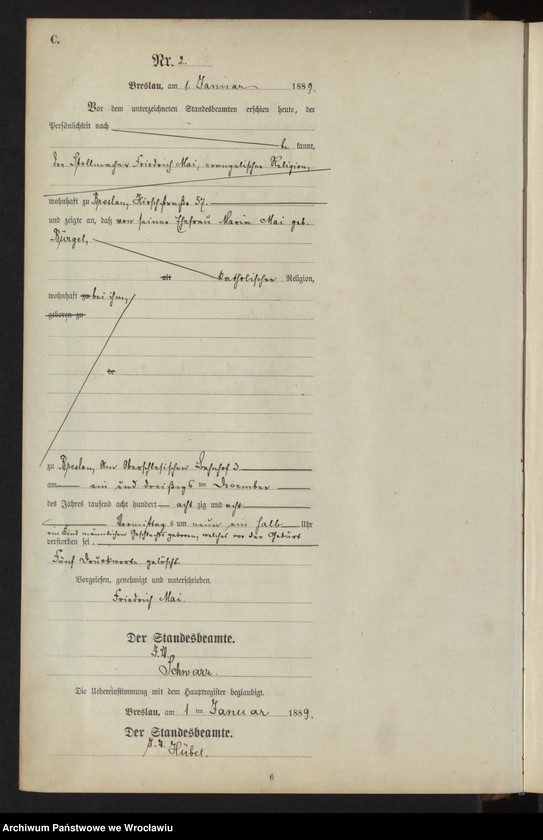 C.
Nr. 2.
Breslau, am 1. Januar 1889.
Vor dem unterzeichneten Standesbeamten erschien heute, der
Persönlichkeit nach
be kannt,
der Stellmacher Friedrich Mai, evangelischer Religion,
wohnhaft zu Breslau, Hirschstraße 57.
und zeigte an, daß von seiner Ehefrau Maria Mai geb.
Bürgel,
alt katholischer Religion,
wohnhaft zu bei ihm,
geboren zu
de
zu Breslau, Am Oberschlesischen Bahnhof 3
am ein und dreißigs ten December
des Jahres tausend acht hundert acht zig und acht
Vormittag s um neun ein halb Uhr
ein Kind männlichen Geschlechts geboren, welches vor der Geburt
verstorben sei.
Fünf Druckworte gelöscht
Vorgelesen, genehmigt und unterschrieben.
Friedrich Mai.
Der Standesbeamte.
J. V.
Schwarz.
Die Uebereinstimmung mit dem Hauptregister beglaubigt.
Breslau, am 1 ten Januar 1889.
Der Standesbeamte.
J. V. Hübel.
6
Archiwum Państwowe we Wrocławiu